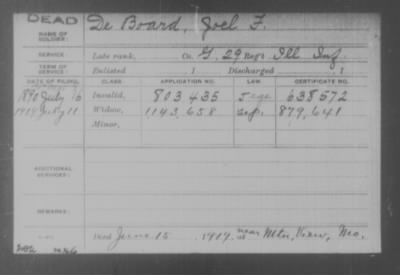 DEAD
NAME OF SOLDIER: De Board, Joel F.
SERVICE: Late rank, Co. G, 29 Reg't Ill Inf.
TERM OF SERVICE: Enlisted , 1 Discharged , 1
DATE OF FILING. CLASS. APPLICATION NO. LAW. CERTIFICATE NO.
1890 July 16 Invalid, 803435 638572
1919 July 11 Widow, 1143,658 879,641
Minor,
ADDITIONAL SERVICES:
REMARKS:
Died June 15 1919. near Mtn. View, Mo.